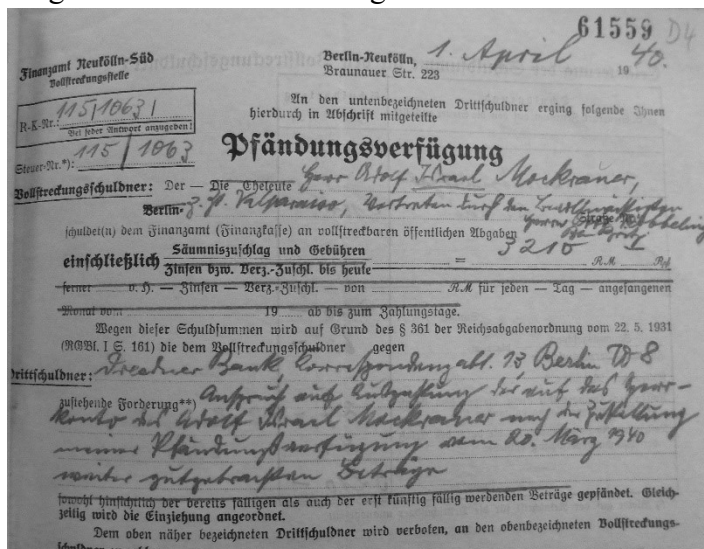 61559 D4
Finanzamt Neukölln-Süd
Vollstreckungsstelle
Berlin-Neukölln, 1. April 1940.
Braunauer Str. 223
R.-K.-Nr.: 115/1063/
Bei jeder Antwort anzugeben!
Steuer-Nr.*): 115/1063
An den untenbezeichneten Drittschuldner erging folgende Ihnen
hierdurch in Abschrift mitgeteilte
Pfändungsverfügung
Vollstreckungsschuldner: Der — Die Eheleute Herr Adolf Israel Mockrauer,
Berlin- z. Zt. Valparaiso, vertreten durch den
schuldet(n) dem Finanzamt (Finanzkasse) an vollstreckbaren öffentlichen Abgaben
einschließlich Säumniszuschlag und Gebühren = 3210 R.M Rpf
Zinsen bzw. Verz.-Zuschl. bis heute
ferner v. H. — Zinsen — Verz.-Zuschl. — von R.M für jeden — Tag — angefangenen
Monat vom 19 ab bis zum Zahlungstage.
Wegen dieser Schuldsummen wird auf Grund des § 361 der Reichsabgabenordnung vom 22. 5. 1931
(RGBl. I S. 161) die dem Vollstreckungsschuldner gegen
Drittschuldner: Dresdner Bank Korrespondenzabt. 13 Berlin W 8
zustehende Forderung**) Anspruch auf Auszahlung der auf das Sperr-
konto des Adolf Israel Mockrauer nach der Zustellung
meiner Pfändungsverfügung vom 20. März 1940
weiter gutgebrachten Beträge
sowohl hinsichtlich der bereits fälligen als auch der erst künftig fällig werdenden Beträge gepfändet. Gleich-
zeitig wird die Einziehung angeordnet.
Dem oben näher bezeichneten Drittschuldner wird verboten, an den obenbezeichneten Vollstreckungs-